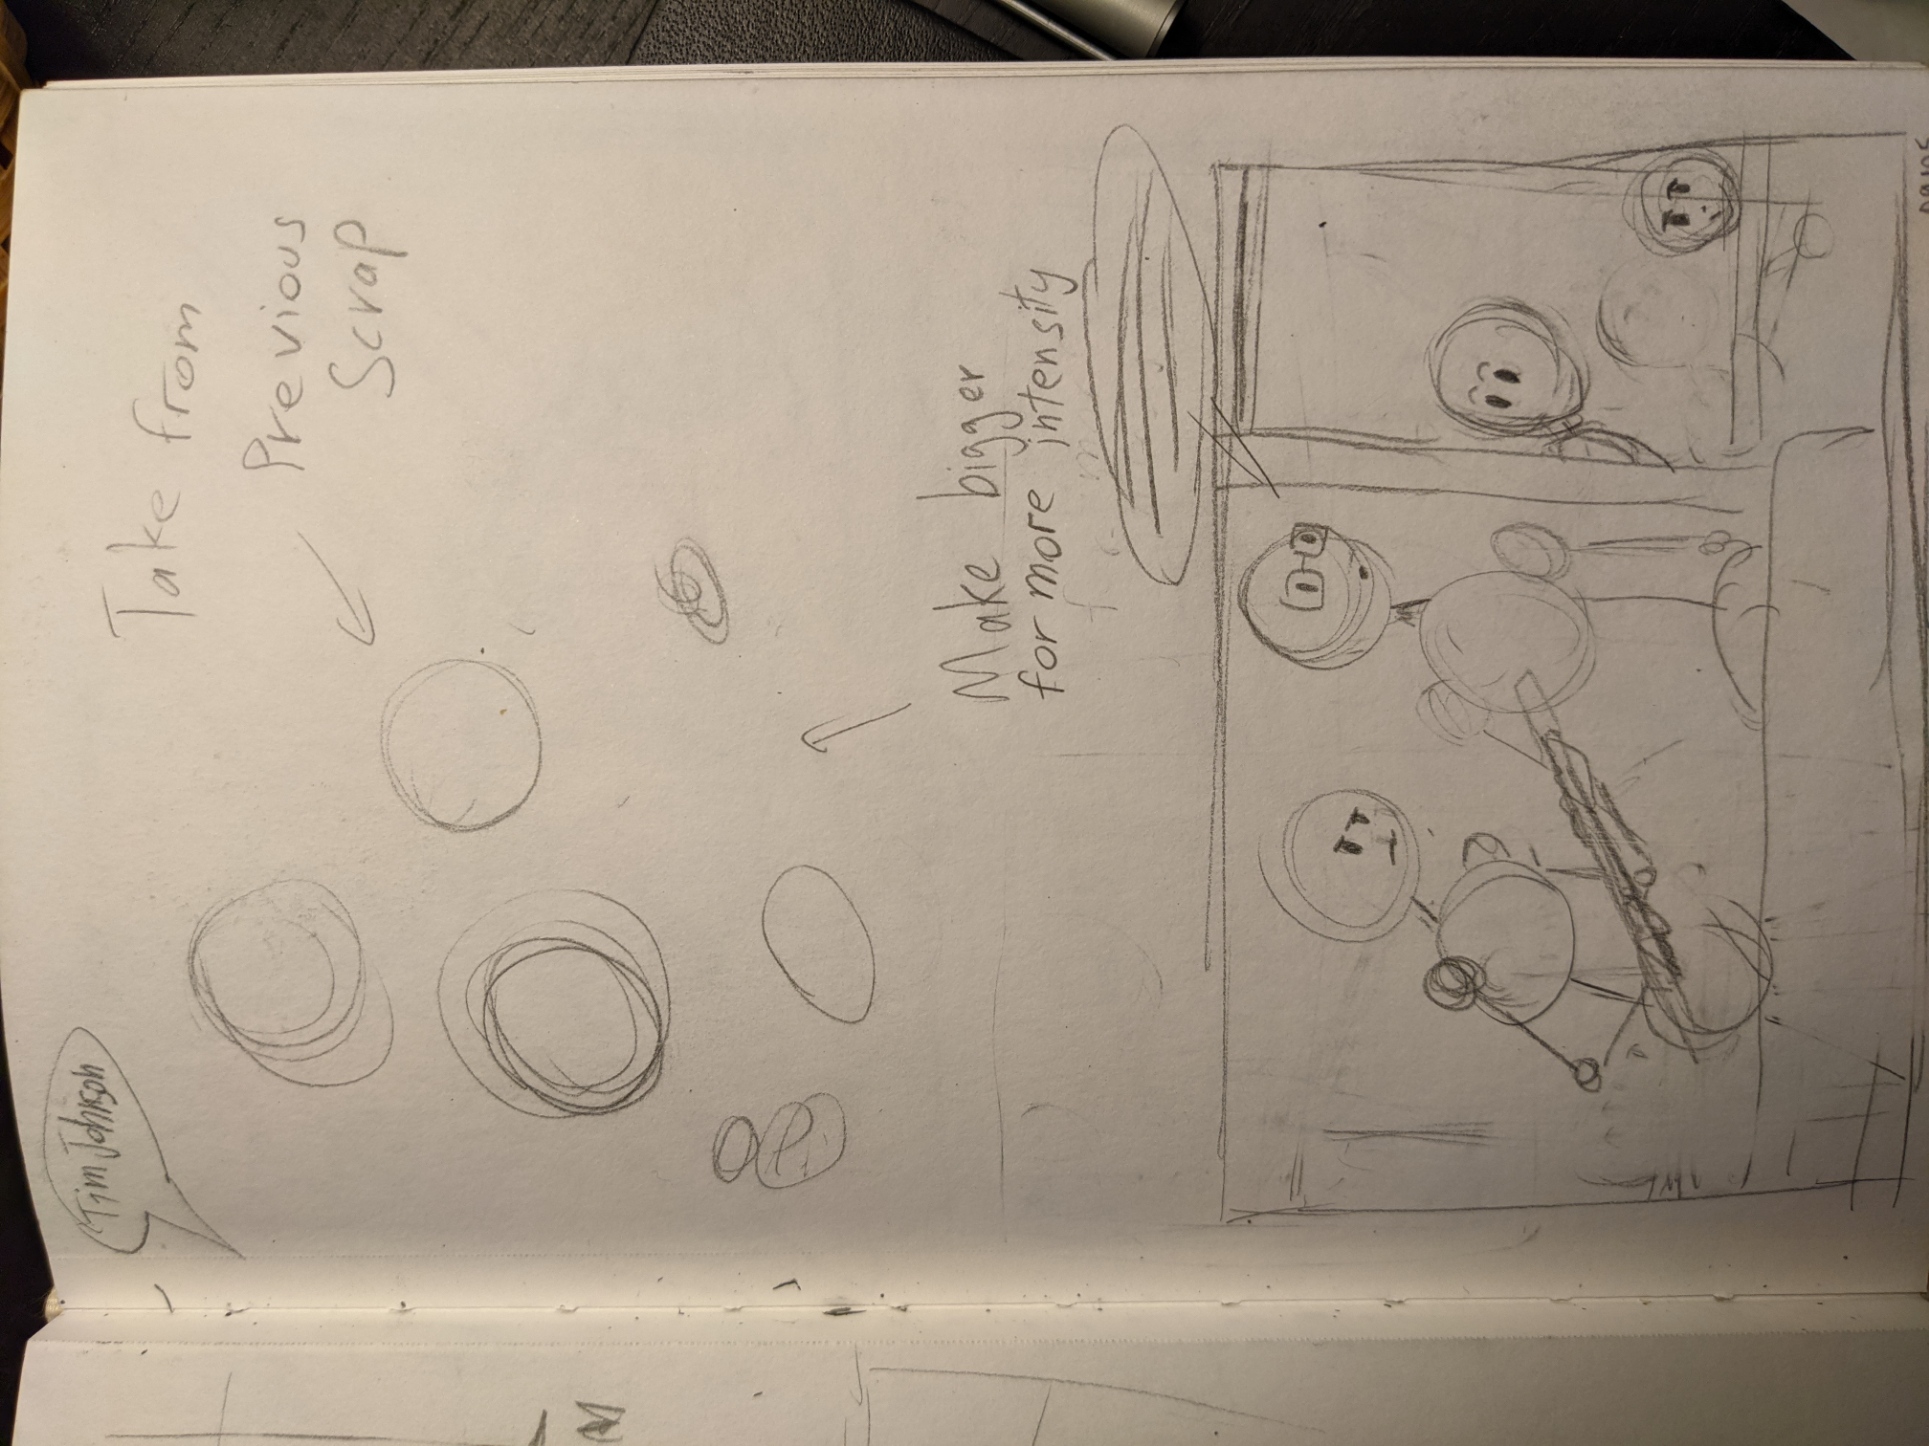 Tim Johnson
Take from
Previous
Scrap
Make bigger
for more intensity